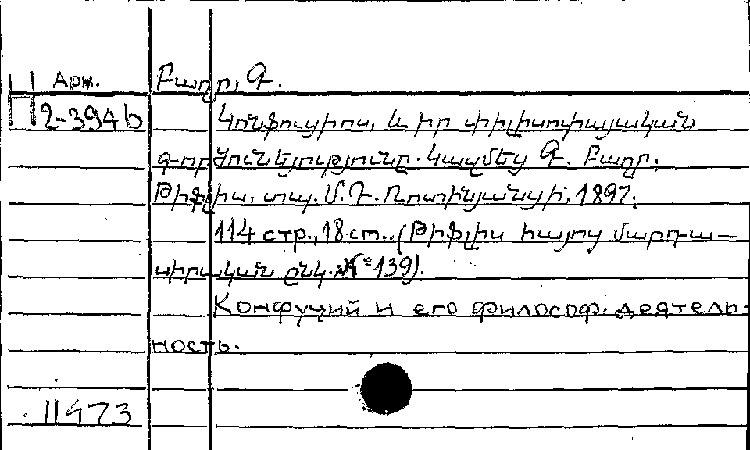 Арм. Բաղր, Գ.
2-394b Կոնֆուցիոս, և իր փիլիսոփայական
գործունեյությունը. Կազմեց Գ. Բաղր.
Թիֆլիս, տպ. Մ. Դ. Ռոտինյանցի, 1897.
114 стр., 18 cm., (Թիֆլիս հայոց մարդա-
սիրական ընկ. № 139).
Конфуций и его философ. деятель-
ность.
11473